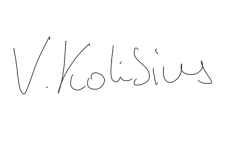 V. Kolisius